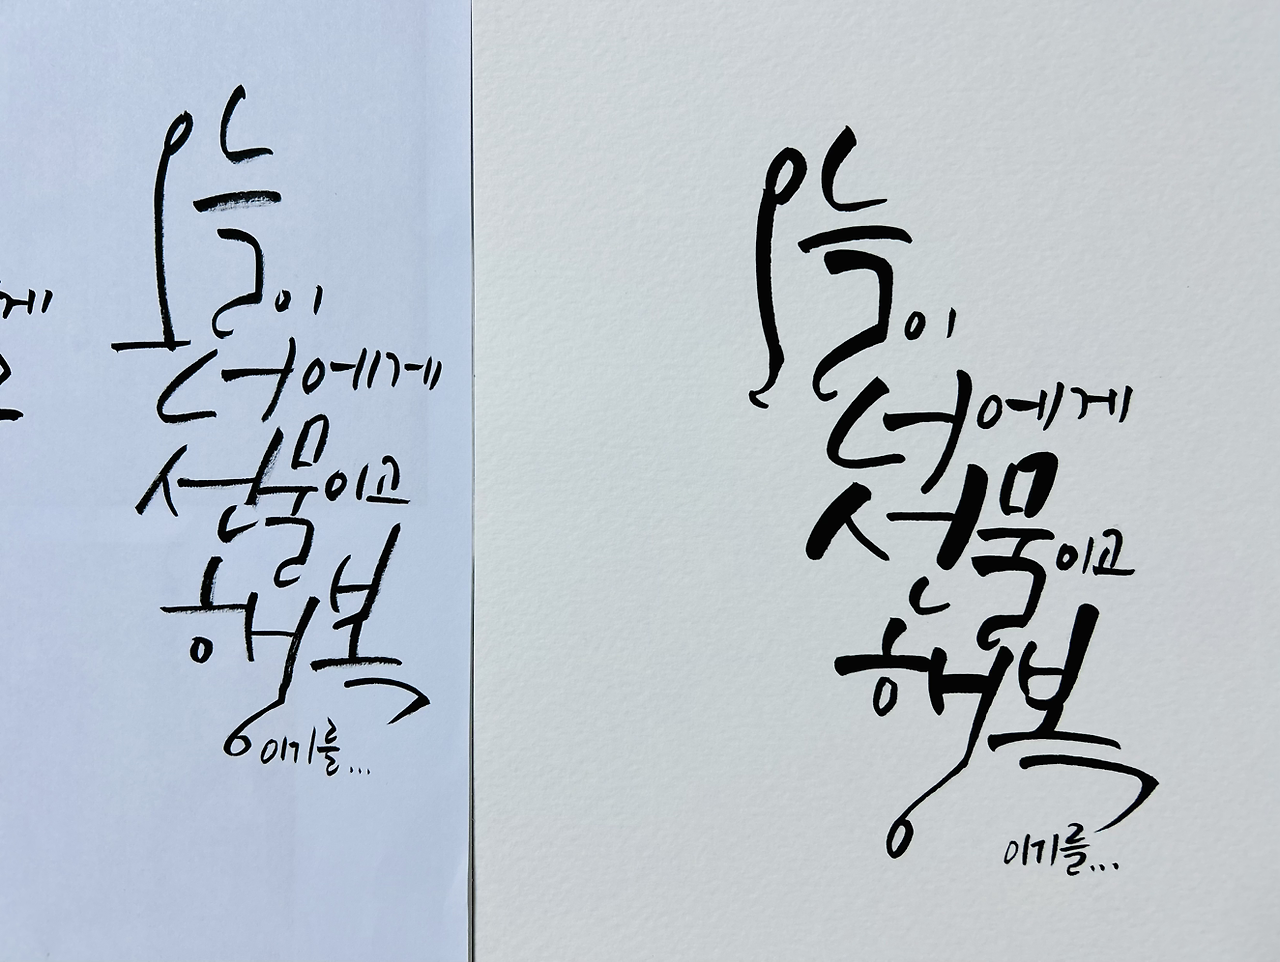 오늘이
너에게
선물이고
행복
이기를...
오늘이
너에게
선물이고
행복
이기를...